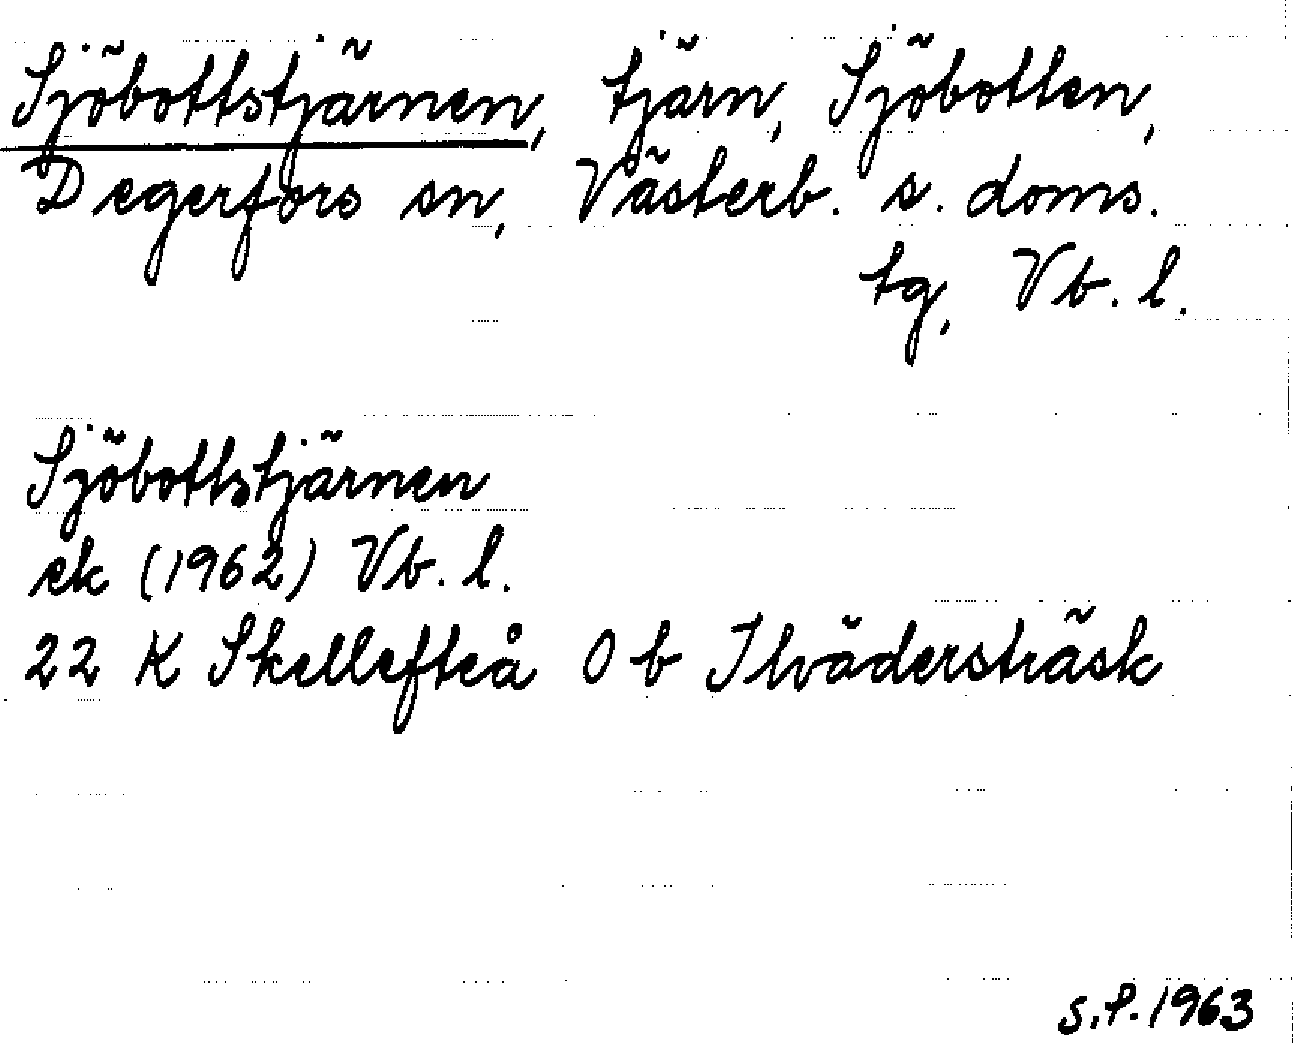 Sjöbottstjärnen, tjärn, Sjöbotten,
Degerfors sn, Västerb. s. doms.
tg, Vb. l.
Sjöbottstjärnen
ek (1962) Vb. l.
22 K Skellefteå 0 b Ilvädersträsk
s.P. 1963